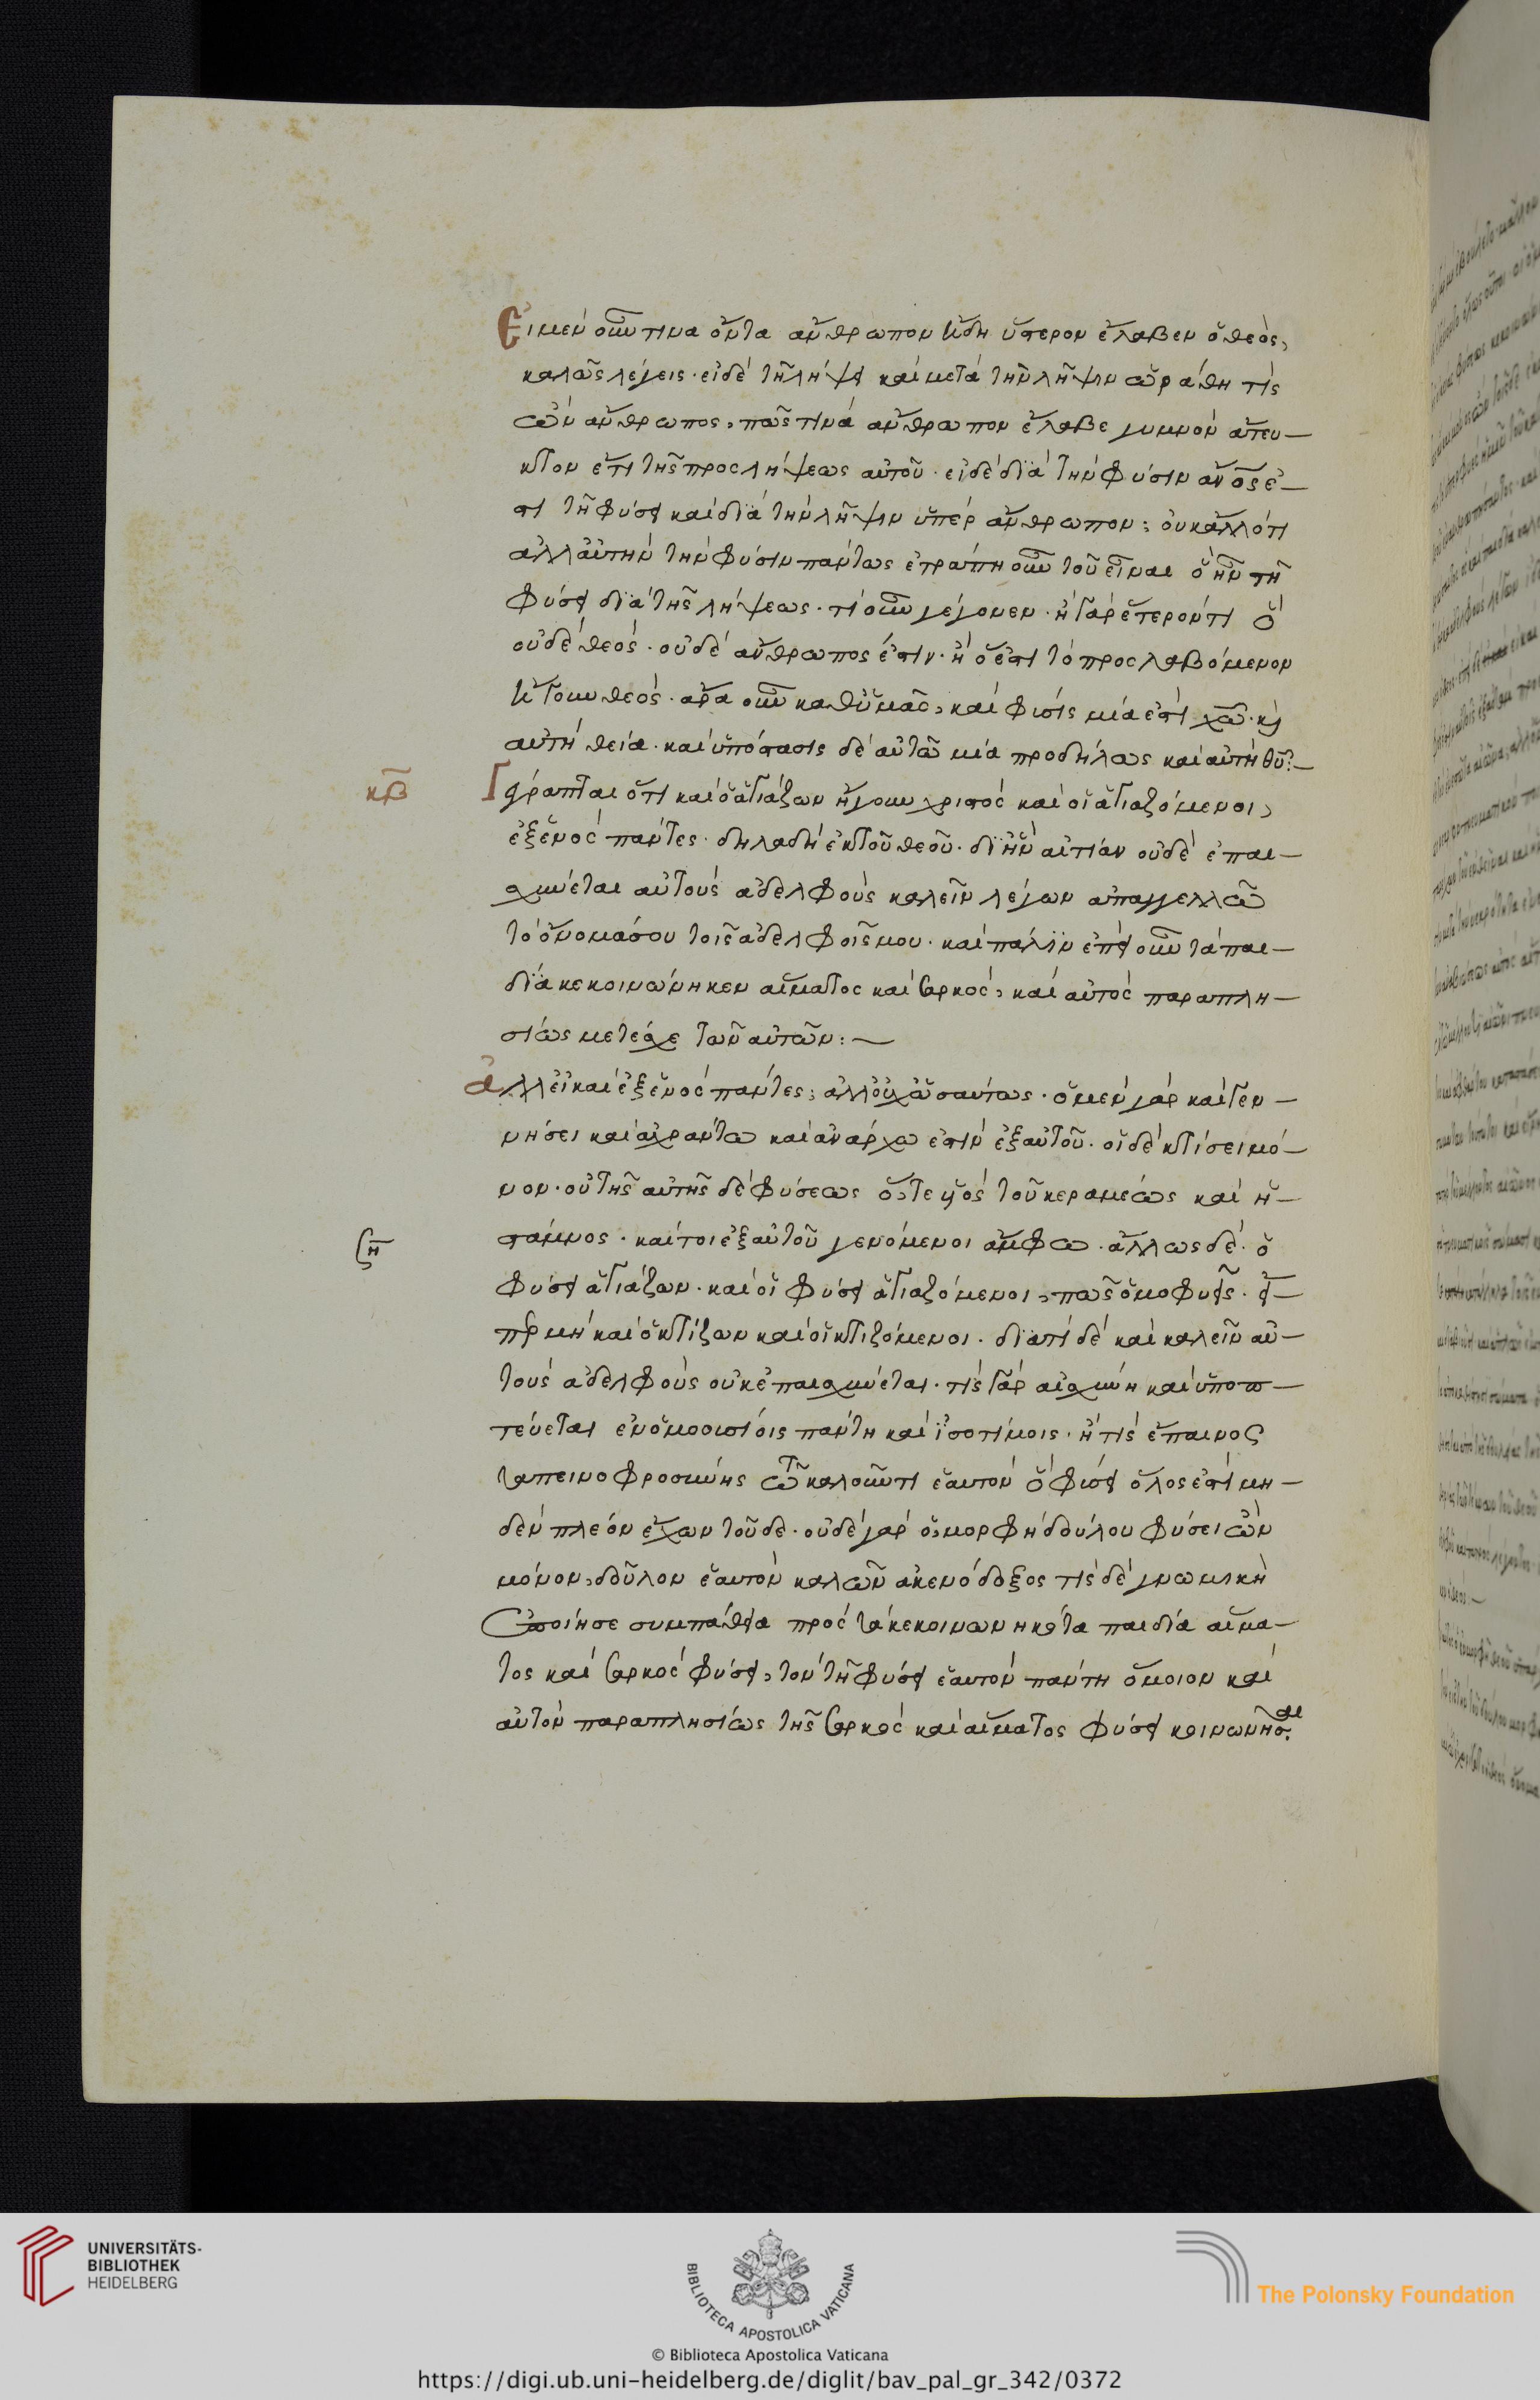 Εἰ μὲν οὖν τινα ὄντα ἄνθρωπον ἤδη ὕστερον ἔλαβεν ὁ θεὸς,
καλῶς λέγεις· εἰ δὲ τῇ λήψει καὶ μετὰ τὴν λῆψιν ὡράθη τίς
ὢν ἄνθρωπος, πῶς τινὰ ἄνθρωπον ἔλαβε γυμνὸν ἄτευ–
κτον ἔτι τῆς προσλήψεως αὐτοῦ· εἰ δὲ διὰ τὴν φύσιν ἄνος ἐ–
στι τῇ φύσει καὶ διὰ τὴν λῆψιν ὑπὲρ ἄνθρωπον; οὐκ ἄλλό τι
ἀλλ' αὐτὴν τὴν φύσιν πάντως ἐτράπη οὖν τοῦ εἶναι ὃ ἦν τῇ
φύσει διὰ τῆς λήψεως· τί οὖν γέγονεν· ἢ γὰρ ἕτερόν τι ὃ
οὐδὲ θεὸς· οὐδὲ ἄνθρωπος ἐστιν· ἢ ὅ ἐστι τὸ προσλαβόμενον
ἤγουν θεὸς· ἄρα οὖν καθ' ὑμᾶς, καὶ φύσις μία ἐστὶ χῶ· κὶ
αὐτὴ θεία· καὶ ὑπόστασις δὲ αὐτῶ μία προδήλως καὶ αὐτὴ θῦ:–
κβ Γέγραπται ὅτι καὶ ὁ ἁγιάζων ἤγουν χριστὸς καὶ οἱ ἁγιαζόμενοι,
ἐξ ἑνὸς πάντες· δηλαδὴ ἐκ τοῦ θεοῦ· δι' ἣν αἰτίαν οὐδὲ ἐπαι–
σχύνεται αὐτοὺς ἀδελφοὺς καλεῖν λέγων ἀπαγγελλῶ
τὸ ὄνομά σου τοῖς ἀδελφοῖς μου· καὶ πάλιν ἐπεὶ οὖν τὰ παι–
δία κεκοινώνηκεν αἵματος καὶ σαρκὸς, καὶ αὐτὸς παραπλη–
σίως μετέσχε τῶν αὐτῶν:–
Ἀλλ' εἰ καὶ ἐξ ἑνὸς πάντες; ἀλλ' οὐχ ὡσαύτως· ὁ μὲν γὰρ καὶ γεν–
νήσει καὶ ἀχράντω καὶ ἀνάρχω ἐστὶν ἐξ αὐτοῦ· οἱ δὲ κτίσει μό–
νον· οὐ τῆς αὐτῆς δὲ φύσεως ὅ, τε υἱὸς τοῦ κεραμέως καὶ ἡ–
στάμνος· καίτοι ἐξ αὐτοῦ γενόμενοι ἄμφω· ἄλλως δὲ· ὁ
φύσει ἁγιάζων· καὶ οἱ φύσει ἁγιαζόμενοι, πῶς ὁμοφυεῖς· εἴ–
περ μὴ καὶ ὁ κτίζων καὶ οἱ κτιζόμενοι· διατί δὲ καὶ καλεῖν αὐ–
τοὺς ἀδελφοὺς οὐκ ἐπαισχύνεται· τίς γὰρ αἰσχύνη καὶ ὑποπ–
τεύεται ἐν ὁμοουσίοις πάντη καὶ ἰσοτίμοις· ἢ τίς ἔπαινος
ταπεινοφροσύνης τῶ καλοῦντι ἑαυτὸν ὃ φύσει ὅλος ἐστὶ μη–
δὲν πλέον ἔχων τοῦδε· οὐδὲ γὰρ ὁ, μορφὴ δούλου φύσει ὢν
μόνον, δοῦλον ἑαυτὸν καλῶν ἀκενόδοξος τίς δὲ γνωμικὴ
ἐποίησε συμπάθεια πρὸς τὰ κεκοινωνηκότα παιδία αἵμα–
τος καὶ σαρκὸς φύσει, τὸν τῇ φύσει ἑαυτὸν πάντη ὅμοιον καὶ
αὐτὸν παραπλησίως τῆς σαρκὸς καὶ αἵματος φύσει κοινωνῆσαι
UNIVERSITÄTS-
BIBLIOTHEK
HEIDELBERG
BIBLIOTECA APOSTOLICA VATICANA
The Polonsky Foundation
© Biblioteca Apostolica Vaticana
https://digi.ub.uni-heidelberg.de/diglit/bav_pal_gr_342/0372